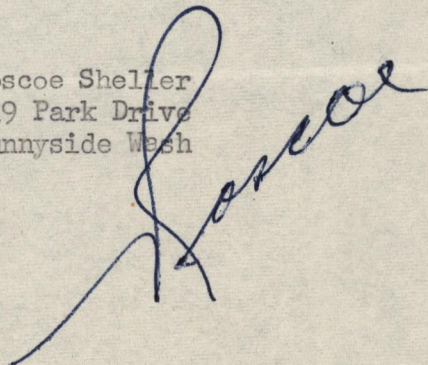 oscoe Sheller
9 Park Drive
unnyside Wash
Roscoe